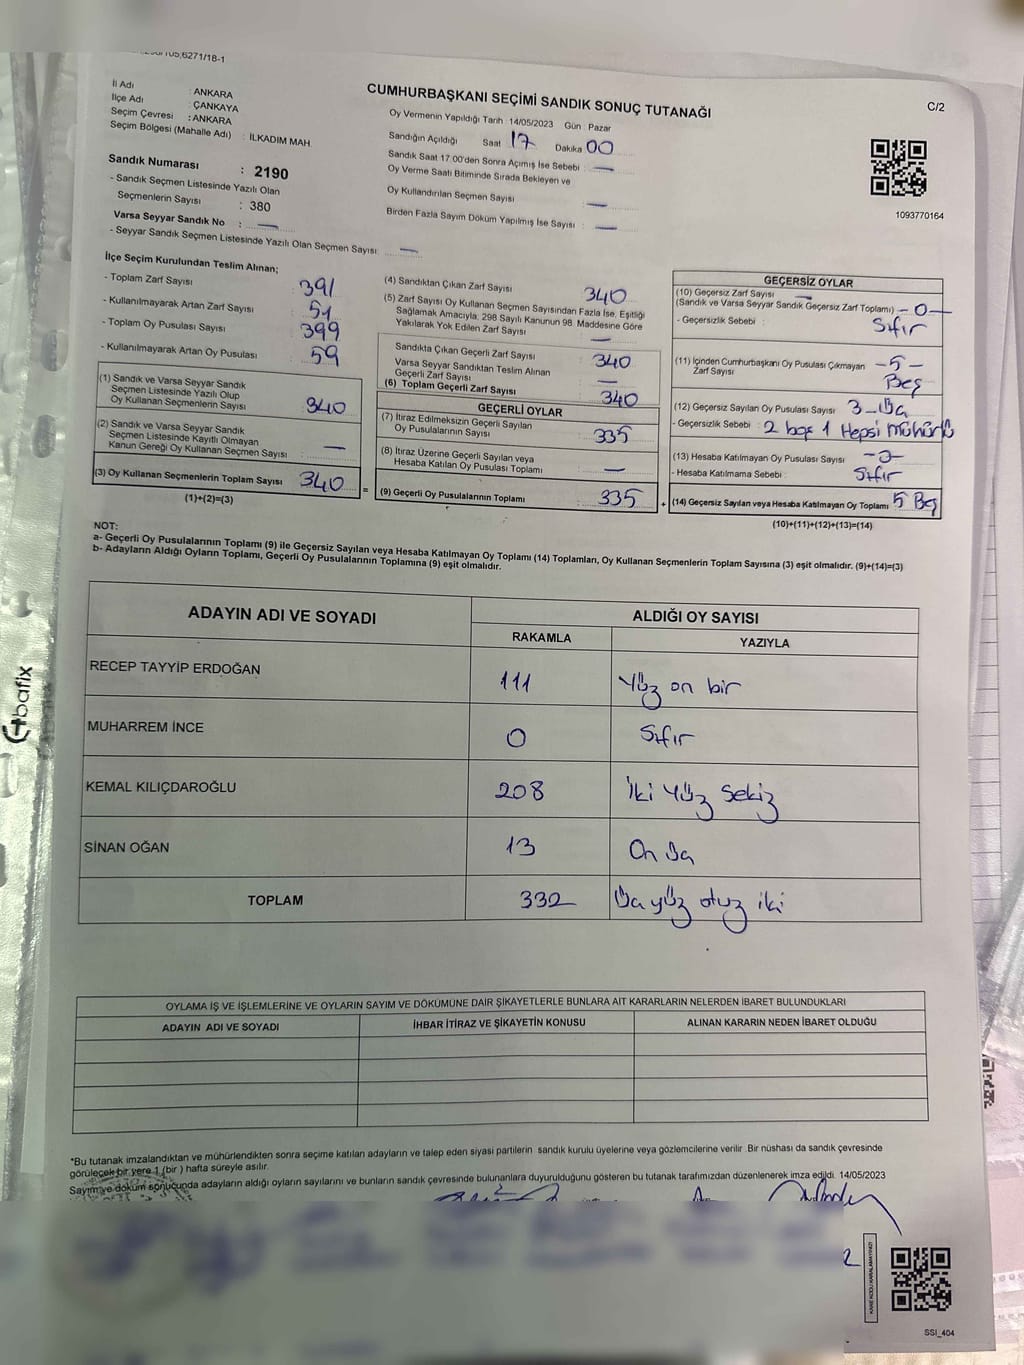 6271/18-1
İl Adı : ANKARA
İlçe Adı : ÇANKAYA
Seçim Çevresi : ANKARA
Seçim Bölgesi (Mahalle Adı) : İLKADIM MAH.
Sandık Numarası : 2190
- Sandık Seçmen Listesinde Yazılı Olan
Seçmenlerin Sayısı : 380
Varsa Seyyar Sandık No : —
- Seyyar Sandık Seçmen Listesinde Yazılı Olan Seçmen Sayısı : —
CUMHURBAŞKANI SEÇİMİ SANDIK SONUÇ TUTANAĞI
Oy Vermenin Yapıldığı Tarih : 14/05/2023 Gün : Pazar
Sandığın Açıldığı Saat 17 Dakika 00
Sandık Saat 17:00'den Sonra Açımış İse Sebebi : —
Oy Verme Saati Bitiminde Sırada Bekleyen ve
Oy Kullandırılan Seçmen Sayısı : —
Birden Fazla Sayım Döküm Yapılmış İse Sayısı : —
C/2
1093770164
İlçe Seçim Kurulundan Teslim Alınan;
- Toplam Zarf Sayısı : 391
- Kullanılmayarak Artan Zarf Sayısı : 51
- Toplam Oy Pusulası Sayısı : 399
- Kullanılmayarak Artan Oy Pusulası : 59
(1) Sandık ve Varsa Seyyar Sandık
Seçmen Listesinde Yazılı Olup
Oy Kullanan Seçmenlerin Sayısı : 340
(2) Sandık ve Varsa Seyyar Sandık
Seçmen Listesinde Kayıtlı Olmayan
Kanun Gereği Oy Kullanan Seçmen Sayısı : —
(3) Oy Kullanan Seçmenlerin Toplam Sayısı : 340
(1)+(2)=(3)
(4) Sandıktan Çıkan Zarf Sayısı : 340
(5) Zarf Sayısı Oy Kullanan Seçmen Sayısından Fazla İse, Eşitliği
Sağlamak Amacıyla, 298 Sayılı Kanunun 98. Maddesine Göre
Yakılarak Yok Edilen Zarf Sayısı : —
Sandıkta Çıkan Geçerli Zarf Sayısı : 340
Varsa Seyyar Sandıktan Teslim Alınan
Geçerli Zarf Sayısı : —
(6) Toplam Geçerli Zarf Sayısı : 340
GEÇERLİ OYLAR
(7) İtiraz Edilmeksizin Geçerli Sayılan
Oy Pusulalarının Sayısı : 335
(8) İtiraz Üzerine Geçerli Sayılan veya
Hesaba Katılan Oy Pusulası Toplamı : —
(9) Geçerli Oy Pusulalarının Toplamı : 335
GEÇERSİZ OYLAR
(10) Geçersiz Zarf Sayısı —
(Sandık ve Varsa Seyyar Sandık Geçersiz Zarf Toplamı) — 0 —
- Geçersizlik Sebebi : Sıfır
(11) İçinden Cumhurbaşkanı Oy Pusulası Çıkmayan
Zarf Sayısı — 5 — Beş
(12) Geçersiz Sayılan Oy Pusulası Sayısı : 3 - Üç
- Geçersizlik Sebebi : 2 boş 1 Hepsi mühürlü
(13) Hesaba Katılmayan Oy Pusulası Sayısı : —
- Hesaba Katılmama Sebebi : Sıfır
(14) Geçersiz Sayılan veya Hesaba Katılmayan Oy Toplamı : 5 Beş
(10)+(11)+(12)+(13)=(14)
NOT:
a- Geçerli Oy Pusulalarının Toplamı (9) ile Geçersiz Sayılan veya Hesaba Katılmayan Oy Toplamı (14) Toplamları, Oy Kullanan Seçmenlerin Toplam Sayısına (3) eşit olmalıdır. (9)+(14)=(3)
b- Adayların Aldığı Oyların Toplamı, Geçerli Oy Pusulalarının Toplamına (9) eşit olmalıdır.
ADAYIN ADI VE SOYADI ALDIĞI OY SAYISI
RAKAMLA YAZIYLA
RECEP TAYYİP ERDOĞAN 111 Yüz on bir
MUHARREM İNCE 0 Sıfır
KEMAL KILIÇDAROĞLU 208 İki Yüz Sekiz
SİNAN OĞAN 13 On Üç
TOPLAM 332 Üç yüz otuz iki
OYLAMA İŞ VE İŞLEMLERİNE VE OYLARIN SAYIM VE DÖKÜMÜNE DAİR ŞİKAYETLERLE BUNLARA AİT KARARLARIN NELERDEN İBARET BULUNDUKLARI
ADAYIN ADI VE SOYADI İHBAR İTİRAZ VE ŞİKAYETİN KONUSU ALINAN KARARIN NEDEN İBARET OLDUĞU
*Bu tutanak imzalandıktan ve mühürlendikten sonra seçime katılan adayların ve talep eden siyasi partilerin sandık kurulu üyelerine veya gözlemcilerine verilir. Bir nüshası da sandık çevresinde
görülecek bir yere 1 (bir) hafta süreyle asılır.
Sayım ve döküm sonucunda adayların aldığı oyların sayılarını ve bunların sandık çevresinde bulunanlara duyurulduğunu gösteren bu tutanak tarafımızdan düzenlenerek imza edildi. 14/05/2023
KARE KODU KARALAMAYINIZ!
SSI_404
bafix